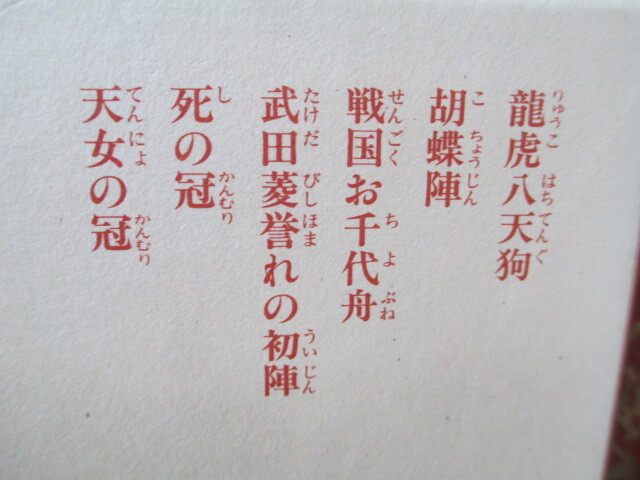 龍虎八天狗
りゅうこ はちてんぐ
胡蝶陣
こちょうじん
戦国お千代舟
せんごく ちよぶね
武田菱誉れの初陣
たけだ びしほま ういじん
死の冠
し かんむり
天女の冠
てんにょ かんむり